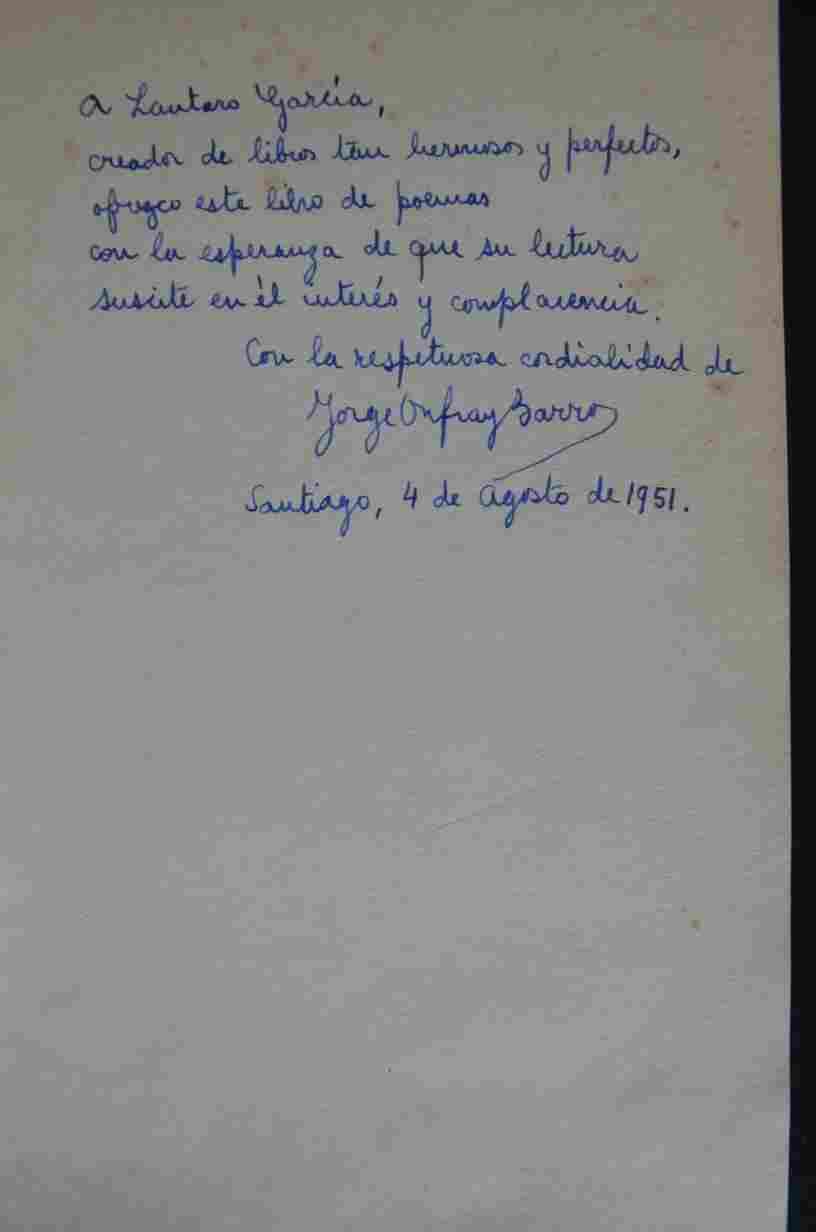 A Lautaro García,
creador de libros tan hermosos y perfectos,
ofrezco este libro de poemas
con la esperanza de que su lectura
suscite en él interés y complacencia.
Con la respetuosa cordialidad de
Jorge Onfray Barros
Santiago, 4 de Agosto de 1951.